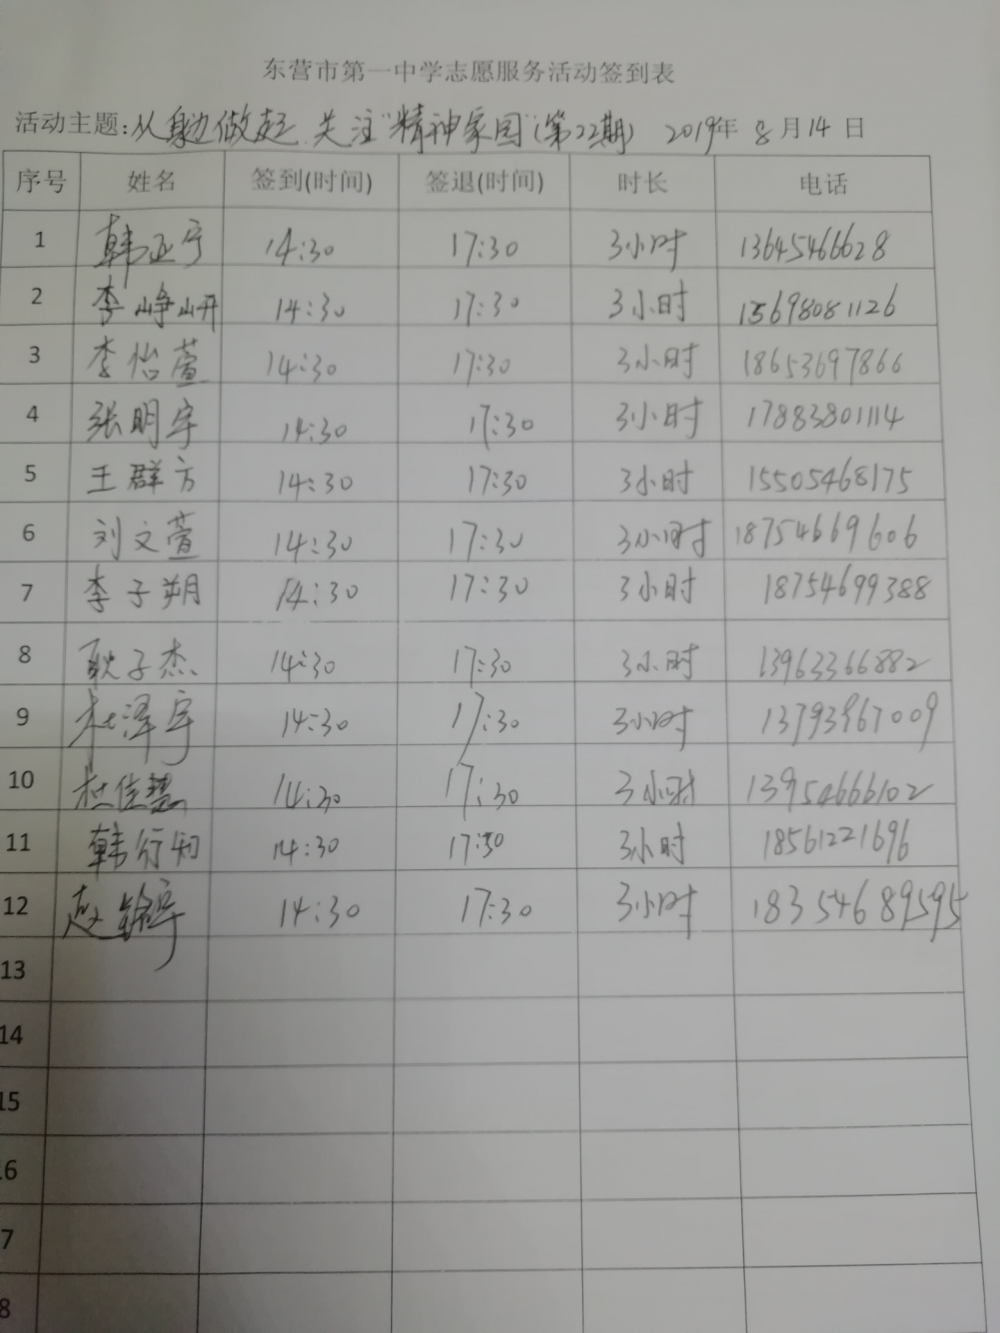 东营市第一中学志愿服务活动签到表
活动主题:从身边做起 关注“精神家园”(第22期) 2019年 8月14日
序号 姓名 签到(时间) 签退(时间) 时长 电话
1 韩正宁 14:30 17:30 3小时 13645466628
2 李峥妍 14:30 17:30 3小时 15698081126
3 李怡萱 14:30 17:30 3小时 18653697866
4 张明宇 14:30 17:30 3小时 17883801114
5 王群方 14:30 17:30 3小时 15505468175
6 刘文萱 14:30 17:30 3小时 18754669606
7 李子朔 14:30 17:30 3小时 18754699388
8 耿子杰 14:30 17:30 3小时 13963366882
9 杜泽宇 14:30 17:30 3小时 13793967009
10 杜佳慧 14:30 17:30 3小时 13954666102
11 韩行知 14:30 17:30 3小时 18561221696
12 赵锦宇 14:30 17:30 3小时 18354689595
13
14
15
6
7
8